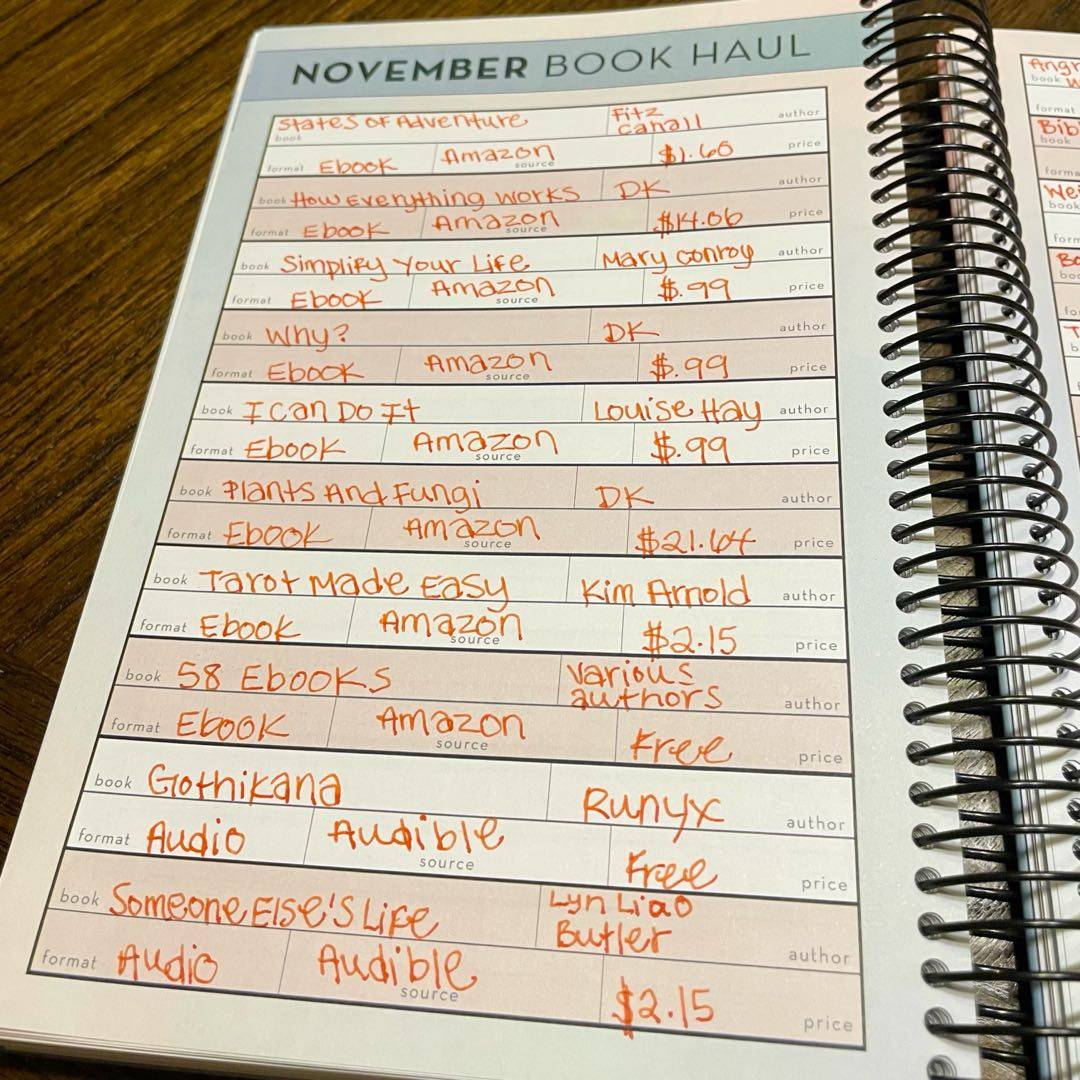 NOVEMBER BOOK HAUL
States of Adventure Fitz
book Cahall author
format Ebook Amazon source $1.60 price
book How Everything Works DK author
format Ebook Amazon source $14.06 price
book Simplify Your Life Mary Conroy author
format Ebook Amazon source $.99 price
book Why? DK author
format Ebook Amazon source $.99 price
book I Can Do It Louise Hay author
format Ebook Amazon source $.99 price
book Plants And Fungi DK author
format Ebook Amazon source $21.64 price
book Tarot Made Easy Kim Arnold author
format Ebook Amazon source $2.15 price
book 58 Ebooks Various
authors author
format Ebook Amazon source Free price
book Gothikana Runyx author
format Audio Audible source Free price
book Someone Else's Life Lyn Liao
Butler author
format Audio Audible source $2.15 price
Angr
book W
format
Bib
book
forma
We
book
form
Bo
boo
fo
T
b